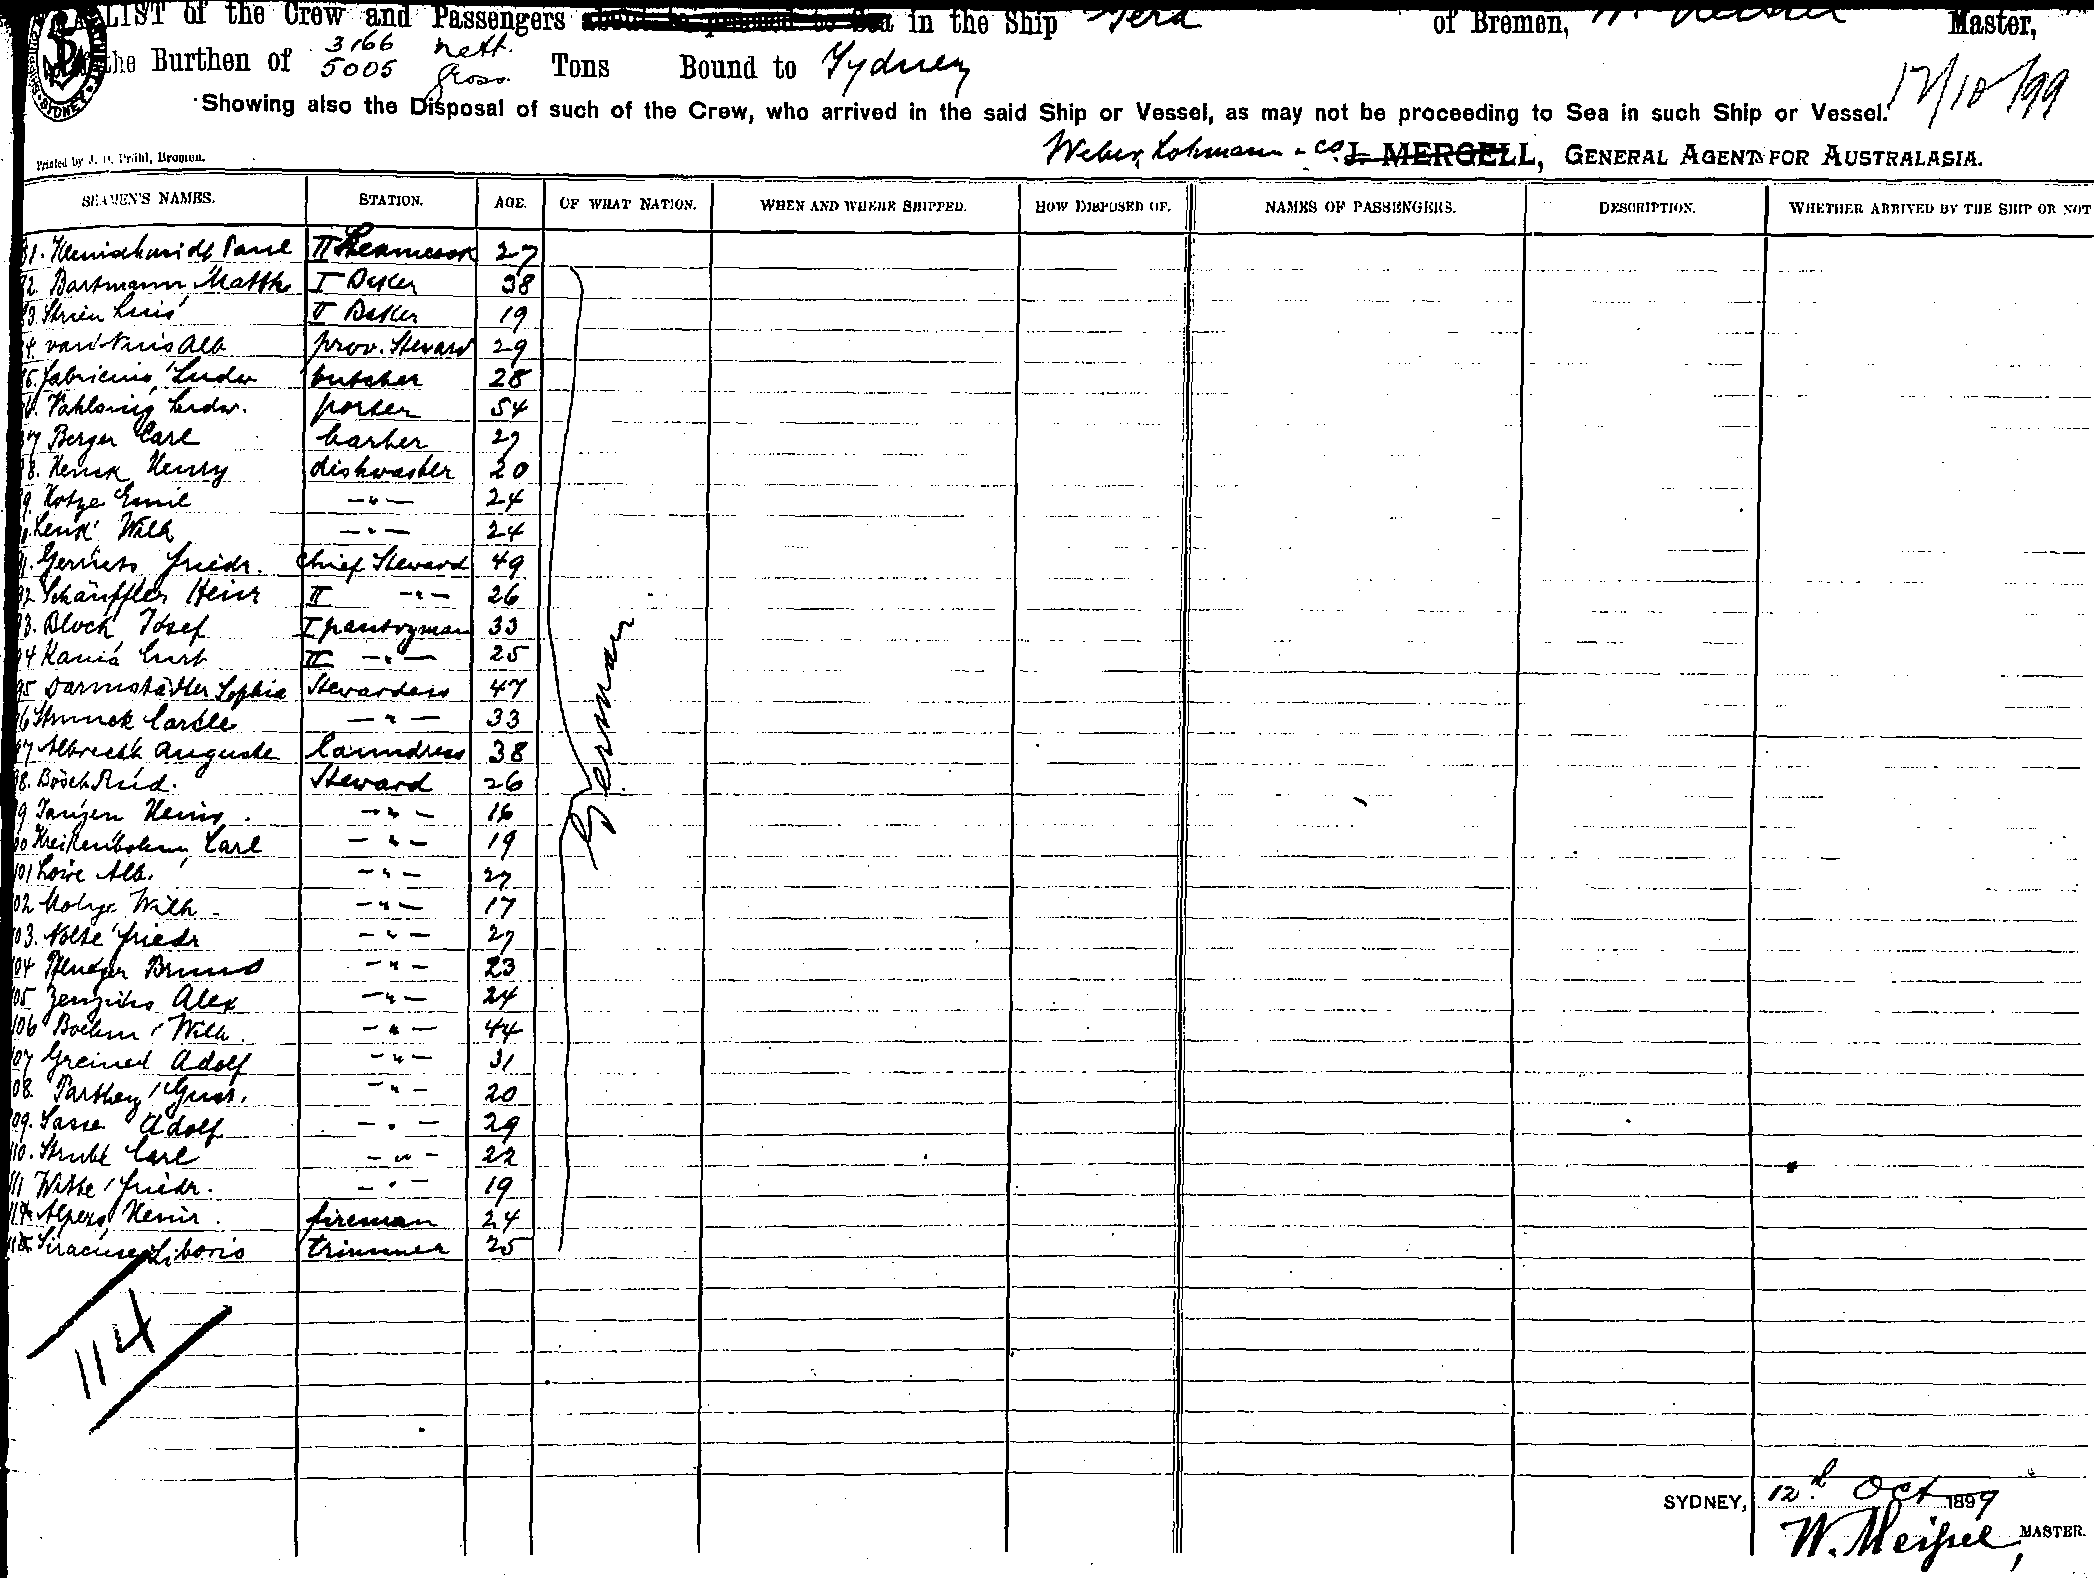 LIST of the Crew and Passengers about to proceed to Sea in the Ship Gera of Bremen, Master,
the Burthen of 3166 nett. 5005 gross. Tons Bound to Sydney
12/10/99
Showing also the Disposal of such of the Crew, who arrived in the said Ship or Vessel, as may not be proceeding to Sea in such Ship or Vessel.
Printed by Bremen.
Weber, Lohmann & Co. J. MERGELL, GENERAL AGENTS FOR AUSTRALASIA.
SEAMEN'S NAMES. STATION. AGE. OF WHAT NATION. WHEN AND WHERE SHIPPED. HOW DISPOSED OF. NAMES OF PASSENGERS. DESCRIPTION. WHETHER ARRIVED BY THE SHIP OR NOT
81. Kleinschmidt Paul II 27
82. Bartmann, Matth I Baker 38
83. Louis II Baker 19
84. Alb prov. Steward 29
85. Fabricius, Ludw butcher 28
86. Ludw. porter 54
87 Berger Carl barber 27
88. Henry dishwasher 20
89. Kotze Emil —"— 24
90. Lenk Wilh —"— 24
91. Gerriets Friedr. Chief Steward 49
92. Schäuffler Heinr II —"— 26
93. Block, Josef I pantryman 33
94 Kania Curt II —"— 25
95 Darmstädter Sophia Stewardess 47
96 Strunck —"— 33
97 Albrecht Auguste laundress 38
98. Bösch Rud. Steward 26
99 Janzen Heinr. —"— 16
100 Kreikenbohm, Carl —"— 19
101 Löwe Alb. —"— 27
102 Wilh —"— 17
103. Nolte Friedr —"— 27
104 Bruno —"— 23
105 Alex —"— 24
106 Boehm, Wilh. —"— 44
107 Greiner Adolf —"— 31
108. Parthey, Gust. —"— 20
109. Sasse Adolf —"— 29
110. Strube Carl —"— 22
111 Witte, Friedr. —"— 19
Alpers, Heinr. fireman 24
Siracuse Liborio trimmer 25
German
114
SYDNEY, 12th Oct 1899
W. Meissel, MASTER.